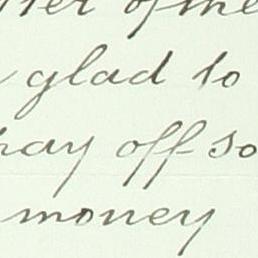 of the
glad to
pay off so
money